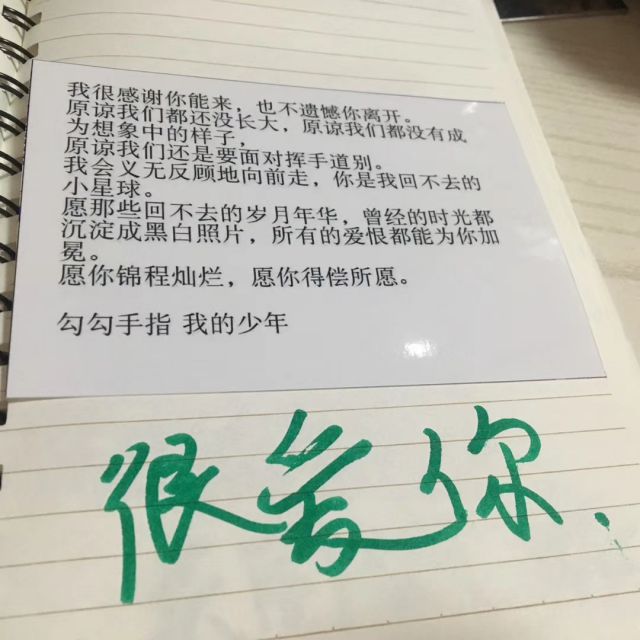 我很感谢你能来，也不遗憾你离开。
原谅我们都还没长大，原谅我们都没有成
为想象中的样子，
原谅我们还是要面对挥手道别。
我会义无反顾地向前走，你是我回不去的
小星球。
愿那些回不去的岁月年华，曾经的时光都
沉淀成黑白照片，所有的爱恨都能为你加
冕。
愿你锦程灿烂，愿你得偿所愿。
勾勾手指 我的少年
很爱你.